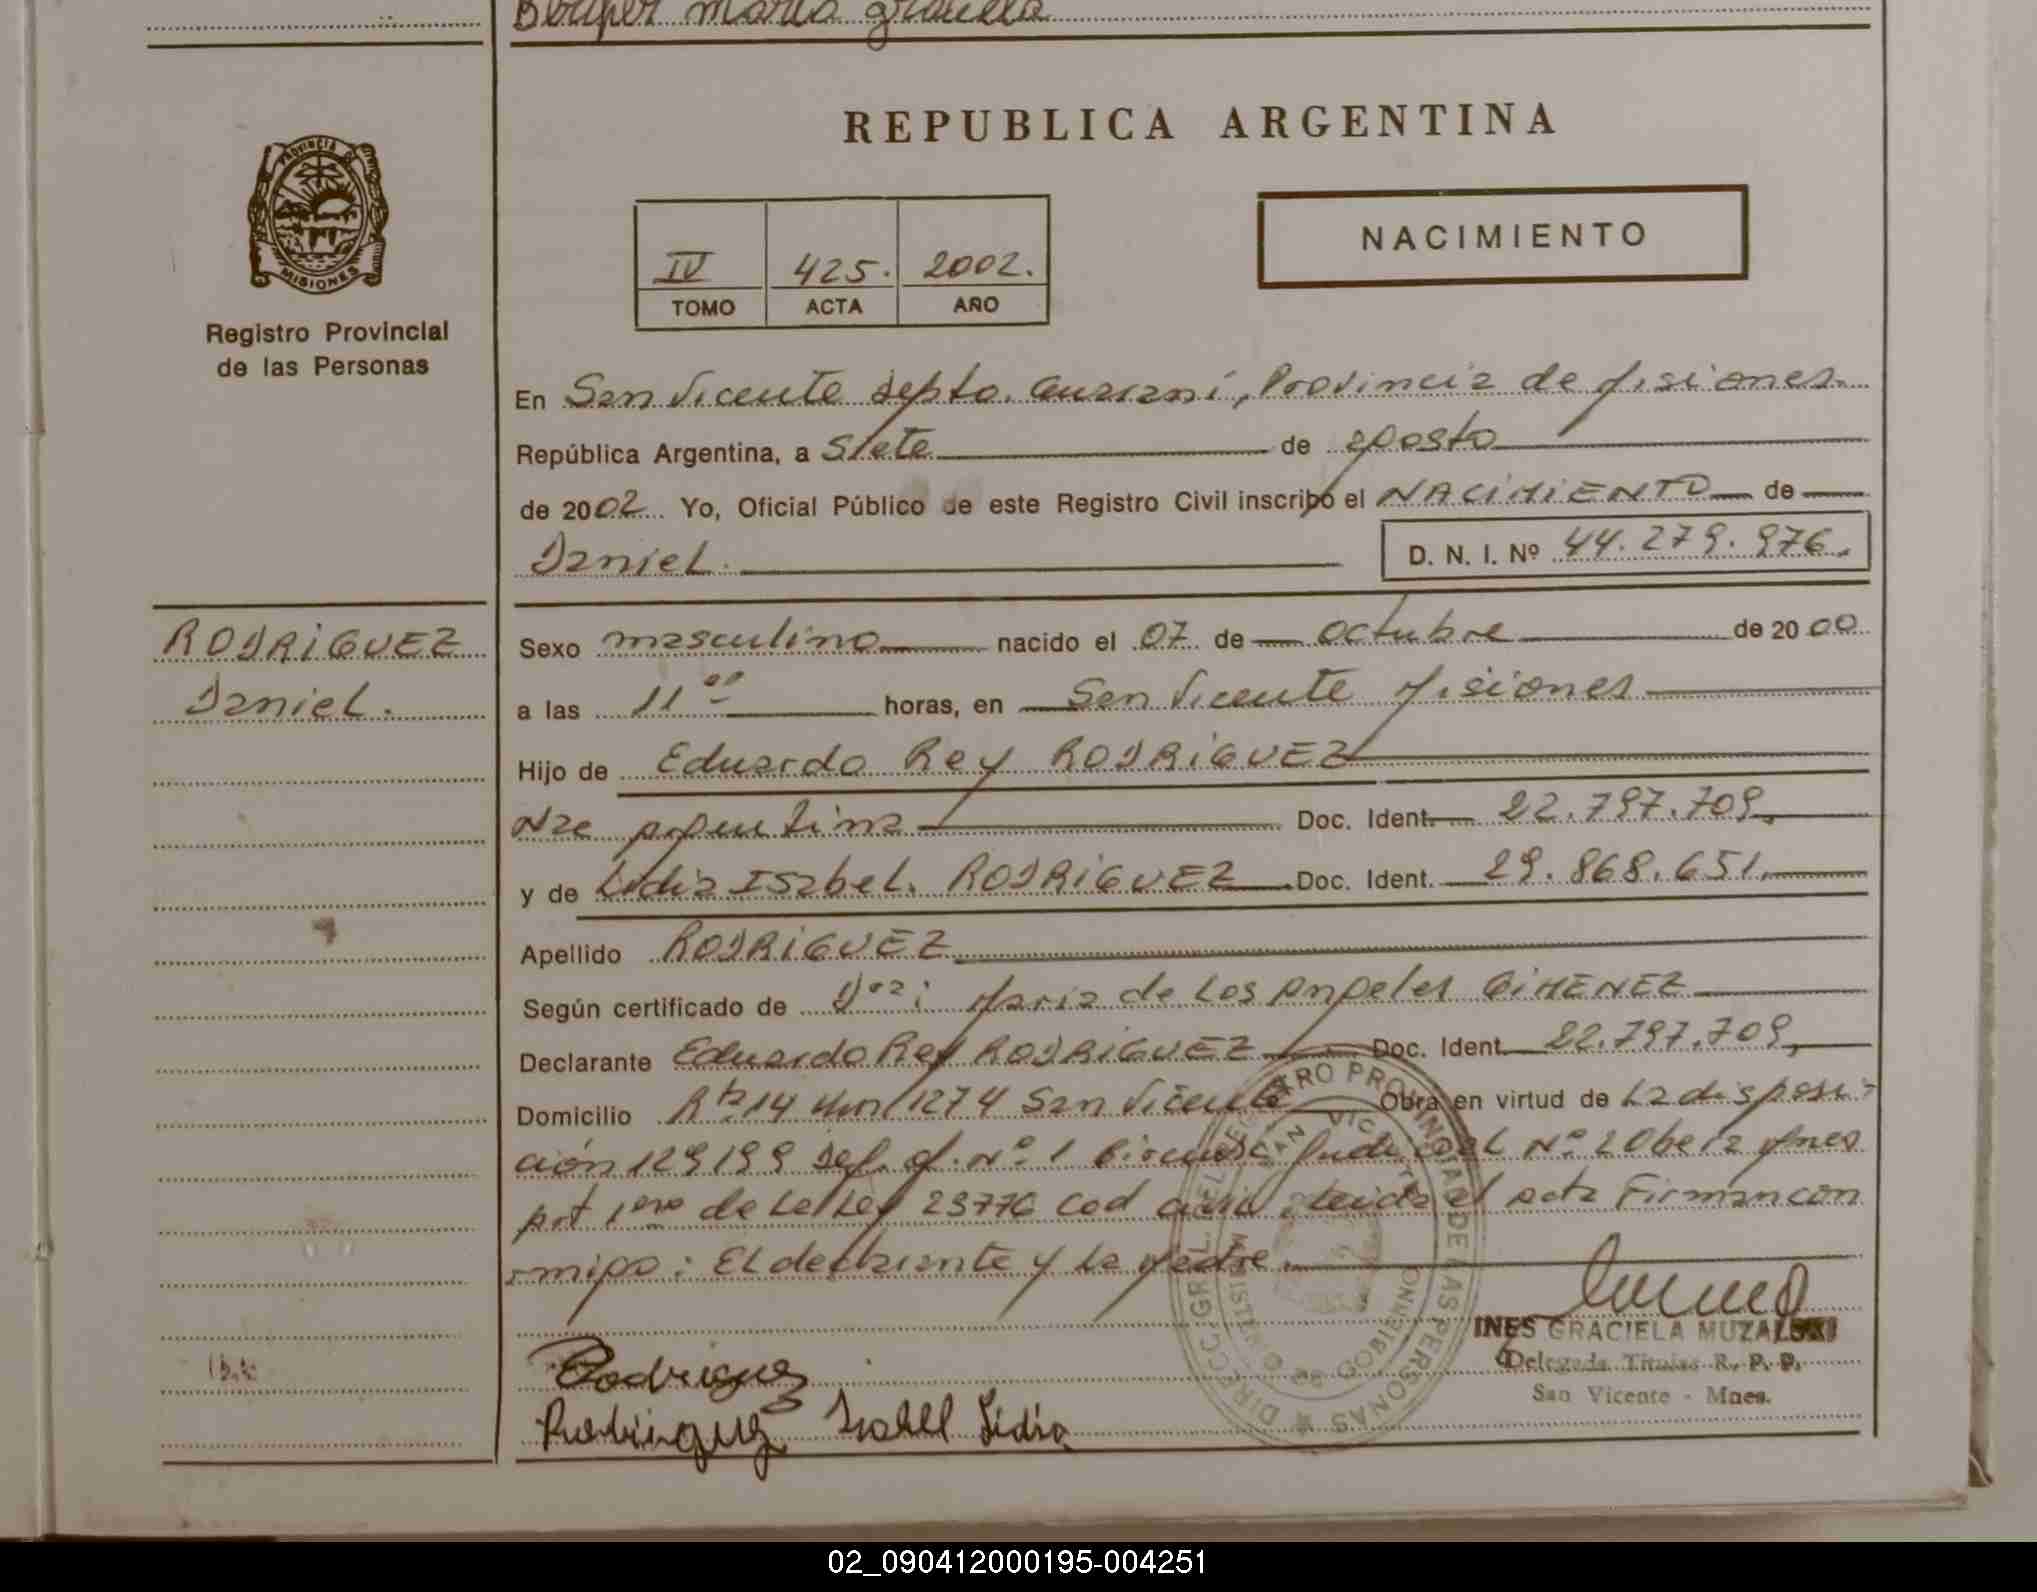 maria graciela
REPUBLICA ARGENTINA
PROVINCIA DE
MISIONES
Registro Provincial
de las Personas
NACIMIENTO
IV 425. 2002.
TOMO ACTA AÑO
En San Vicente Depto. Guaraní, Provincia de Misiones
República Argentina, a Siete de agosto
de 2002 Yo, Oficial Público de este Registro Civil inscribo el NACIMIENTO de
Daniel. D. N. I. Nº 44.279.976.
RODRIGUEZ
Daniel.
Sexo masculino nacido el 07 de octubre de 2000
a las 11 00 horas, en San Vicente Misiones
Hijo de Eduardo Rey RODRIGUEZ
Nac argentina Doc. Ident. 22.797.709,
y de Lidia ISabel. RODRIGUEZ Doc. Ident. 29.868.651,
Apellido RODRIGUEZ
Según certificado de Dra: Maria de Los Angeles GIMENEZ
Declarante Eduardo Rey RODRIGUEZ Doc. Ident. 22.797.709,
Domicilio Rta 14 Km 1274 San Vicente Obra en virtud de La disposi-
ción 129199 Def. M. Nº 1 Judicial Nº 2 Obera Mnes
Art 1ero de La Ley 23776 Cod Civil, leida el acta Firman con
migo: El declarante y la Madre.
Rodriguez
Rodriguez Isabel Lidia
INES GRACIELA MUZALSKI
Delegada Titular R. P. P.
San Vicente - Mnes.
DIRECC. GRAL. DEL REGISTRO PROVINCIAL DE LAS PERSONAS
SAN VICENTE
MINISTERIO DE GOBIERNO
02_090412000195-004251